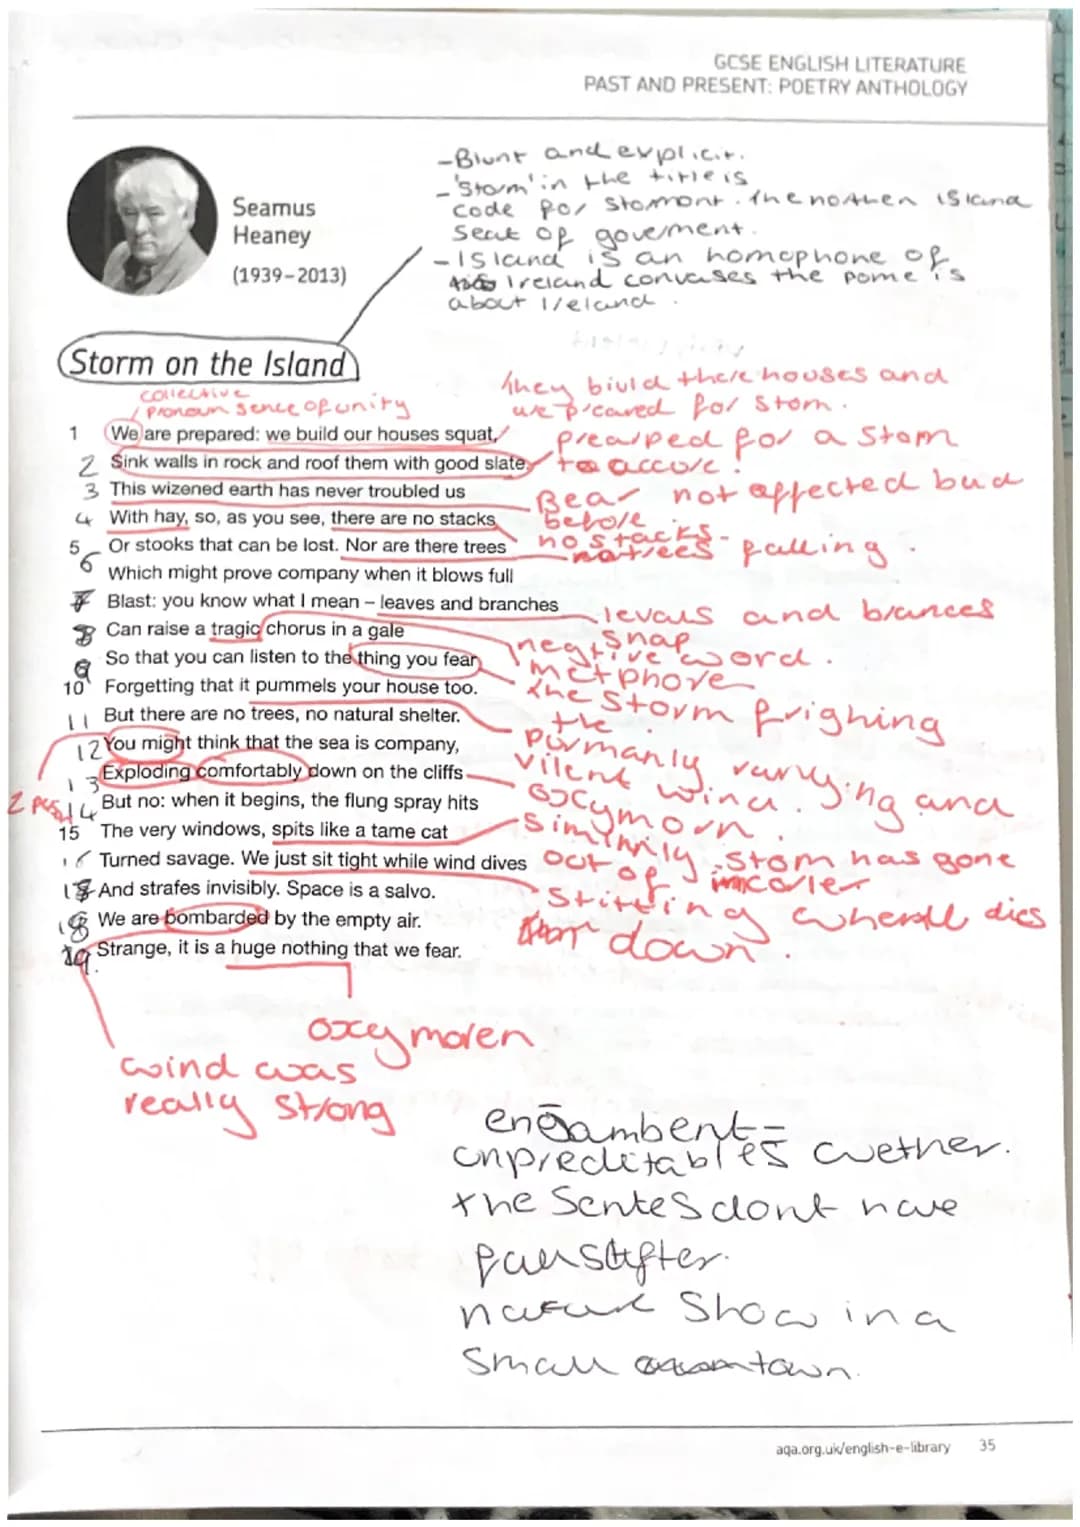 GCSE ENGLISH LITERATURE
PAST AND PRESENT: POETRY ANTHOLOGY
-Blunt and explicit.
-'Storm' in the title is
code for stormont. the northen island
Seat of goverment.
-Island is an homophone of
Ireland convases the pome is
about Ireland.
Seamus
Heaney
(1939–2013)
Storm on the Island
collective
pronoun sence of unity
they biuld there houses and
we preared for Storm.
1 We are prepared: we build our houses squat,
prearped for a Stom
2 Sink walls in rock and roof them with good slate.
to accure.
3 This wizened earth has never troubled us
Bear not affected bud
before
4 With hay, so, as you see, there are no stacks
no stacks-
5 Or stooks that can be lost. Nor are there trees
notrees falling.
6 Which might prove company when it blows full
7 Blast: you know what I mean – leaves and branches
levals and brances
snap
8 Can raise a tragic chorus in a gale
negtive word.
9 So that you can listen to the thing you fear
metphore
10 Forgetting that it pummels your house too.
the storm frighing
the
11 But there are no trees, no natural shelter.
12 You might think that the sea is company,
purmanly varrying and
vilent wind.
13 Exploding comfortably down on the cliffs
oxcymorn.
14 But no: when it begins, the flung spray hits
15 The very windows, spits like a tame cat
simimly Stom has gone
out of
16 Turned savage. We just sit tight while wind dives
17 And strafes invisibly. Space is a salvo.
Stitting dies
down.
18 We are bombarded by the empty air.
19. Strange, it is a huge nothing that we fear.
oxcymoren
wind was
really Strong
engambent=
unpreditables wether.
the Sentes dont have
nature Show in a
Small town.
aqa.org.uk/english-e-library 35